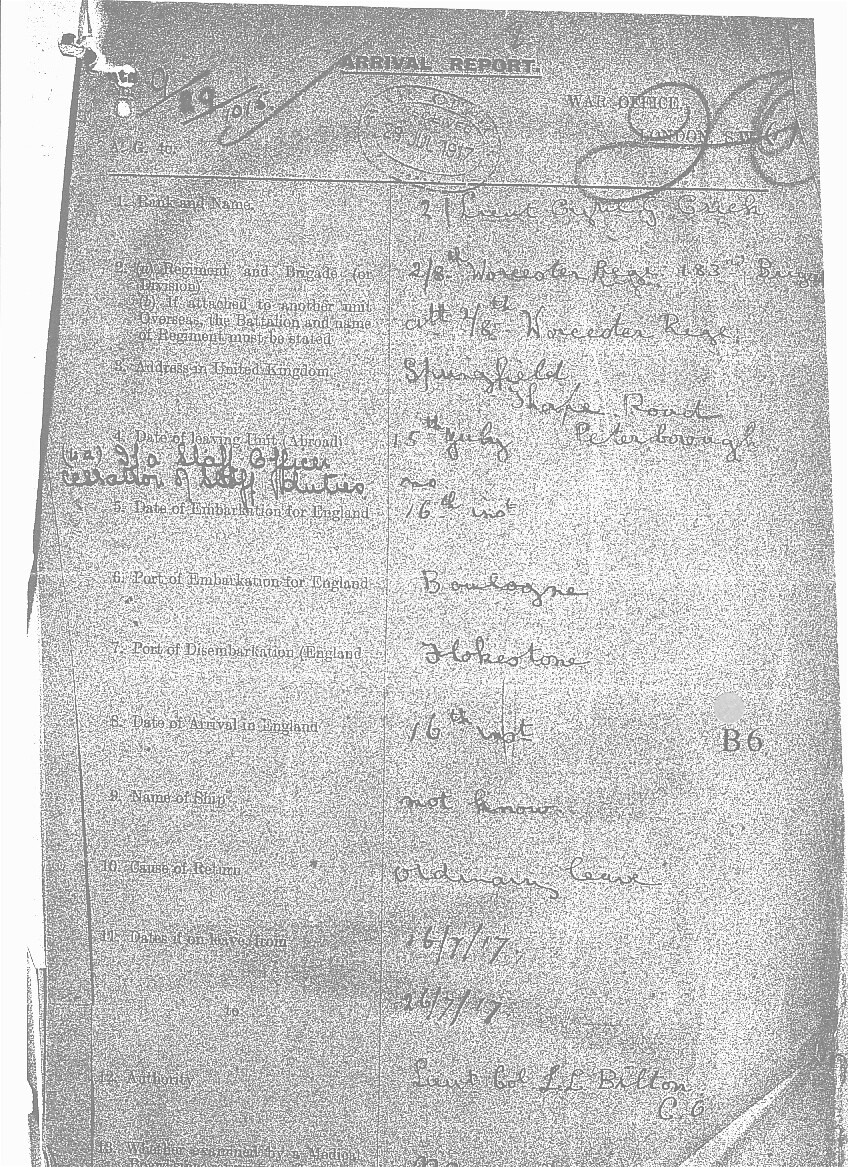 ARRIVAL REPORT.
9
WAR OFFICE,
LONDON, S.W.
29 JUL 1917
A.G. 4o.
1. Rank and Name 2/Lieut Erick
2. (a) Regiment and Brigade (or 2/8th Worcester Regt. 183rd
Division)
(b) If attached to another unit
Overseas, the Battalion and name att 2/8th Worcester Regt.
of Regiment must be stated
3. Address in United Kingdom. Springfield
Road
4. Date of leaving Unit (Abroad) 15th July Peterborough
(4a) If a Staff Officer
cessation of Staff duties no
5. Date of Embarkation for England 16th inst
6. Port of Embarkation for England Boulogne
7. Port of Disembarkation (England Flokestone
8. Date of Arrival in England 16th inst
B6
9. Name of Ship not known
10. Cause of Return ordinary leave
11. Dates if on leave, from 16/7/17.
to 26/7/17.
12. Authority Lieut Col L.L. Bilton
C.O
13. Whether examined by a Medical